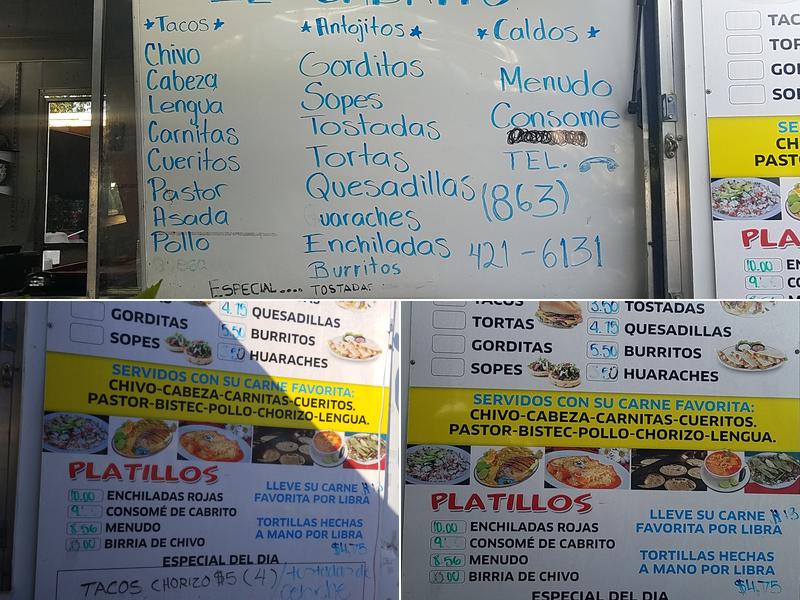 *Tacos*
Chivo
Cabeza
Lengua
Carnitas
Cueritos
Pastor
Asada
Pollo
*Antojitos*
Gorditas
Sopes
Tostadas
Tortas
Quesadillas
uaraches
Enchiladas
Burritos
*Caldos*
Menudo
Consome
TEL.
(863)
421-6131
ESPECIAL.... TOSTADAS
TAC
TOR
GOR
SOP
SE
CH
PAST
PLA
10.00 EN
9 CO
GORDITAS
SOPES
4.75 QUESADILLAS
5.50 BURRITOS
HUARACHES
SERVIDOS CON SU CARNE FAVORITA:
CHIVO-CABEZA-CARNITAS-CUERITOS.
PASTOR-BISTEC-POLLO-CHORIZO-LENGUA.
PLATILLOS
10.00 ENCHILADAS ROJAS
9 CONSOMÉ DE CABRITO
8.50 MENUDO
13.00 BIRRIA DE CHIVO
LLEVE SU CARNE
FAVORITA POR LIBRA
TORTILLAS HECHAS
A MANO POR LIBRA
$4.75
ESPECIAL DEL DIA
TACOS CHORIZO $5 (4) / tostadas de
TACOS
TORTAS
GORDITAS
SOPES
3.50 TOSTADAS
4.75 QUESADILLAS
5.50 BURRITOS
HUARACHES
SERVIDOS CON SU CARNE FAVORITA:
CHIVO-CABEZA-CARNITAS-CUERITOS.
PASTOR-BISTEC-POLLO-CHORIZO-LENGUA.
PLATILLOS
10.00 ENCHILADAS ROJAS
9 CONSOMÉ DE CABRITO
8.50 MENUDO
13.00 BIRRIA DE CHIVO
LLEVE SU CARNE
FAVORITA POR LIBRA
TORTILLAS HECHAS
A MANO POR LIBRA
$4.75
ESPECIAL DEL DIA